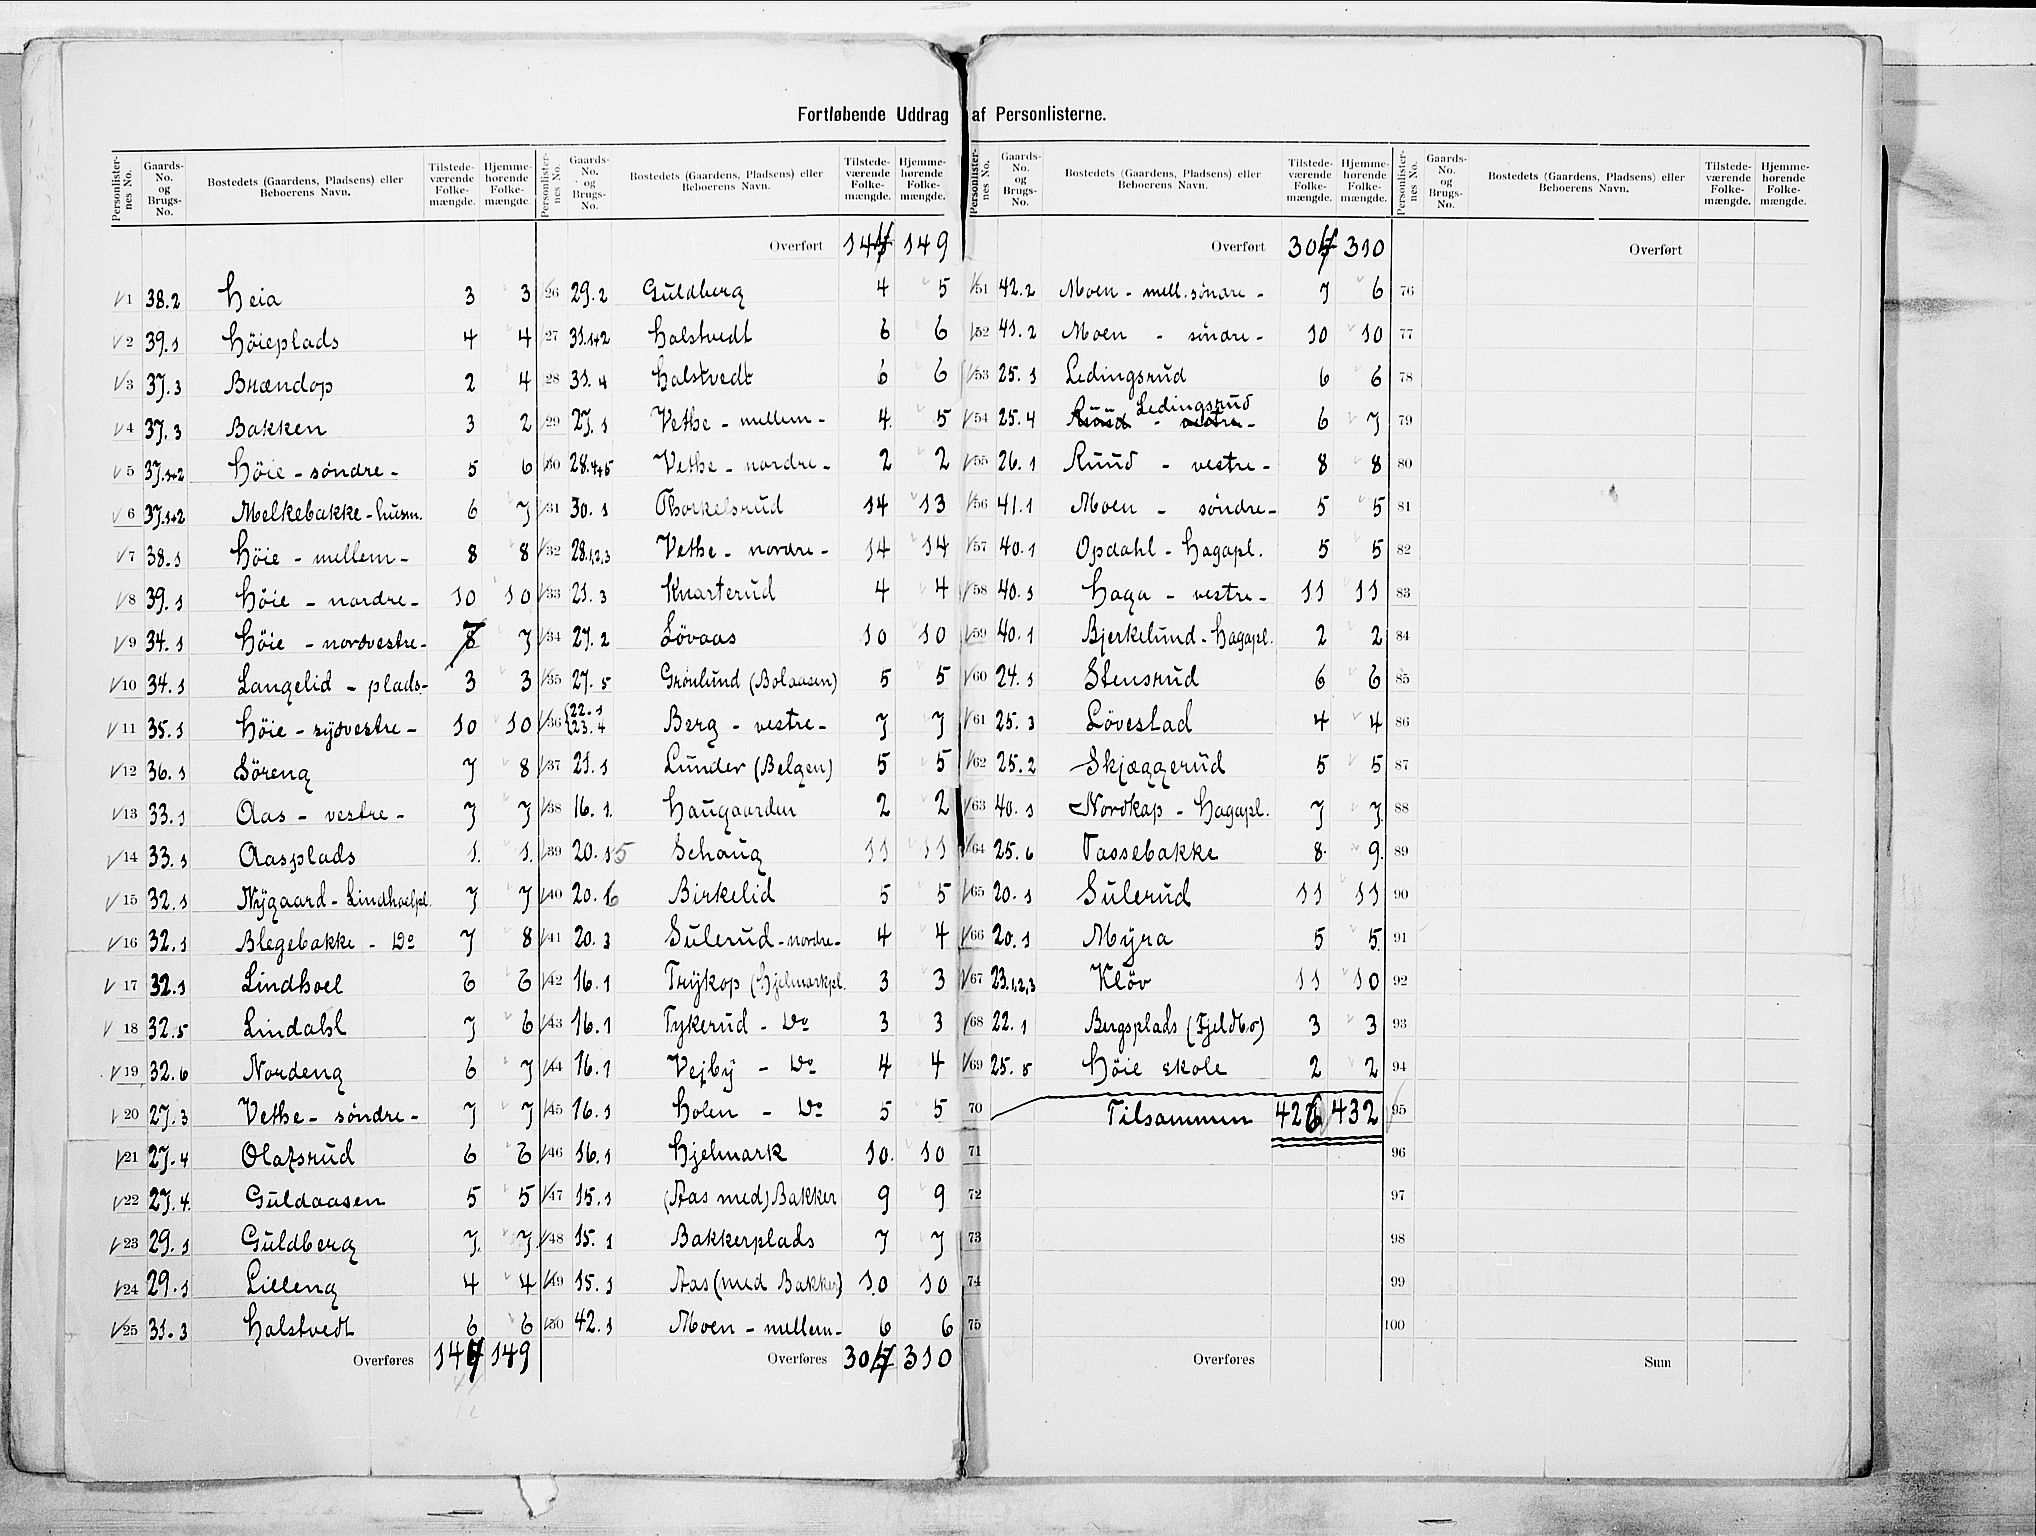 Fortløbende Uddrag af Personlisterne.
Personlister-nes No. | Gaards-No. og Brugs-No. | Bostedets (Gaardens, Pladsens) eller Beboerens Navn. | Tilstede-værende Folke-mængde. | Hjemme-hørende Folke-mængde.
1 38.2 Heia 3 3
2 39.1 Höieplads 4 4
3 37.3 Brændop 2 4
4 37.3 Bakken 3 2
5 37.1+2 Höie - söndre - 5 6
6 37.1+2 Melkebakke - husm. 6 7
7 38.1 Höie - mellem - 8 8
8 39.1 Höie - nordre - 10 10
9 34.1 Höie - nordvestre - 7 7
10 34.1 Langelid - plads - 3 3
11 35.1 Höie - sydvestre - 10 10
12 36.1 Söreng 7 8
13 33.1 Aas - vestre - 7 7
14 33.1 Aasplads 1. 1.
15 32.1 Nygaard - Lindhoelpl. 7 7
16 32.1 Blegebakke - Do 7 8
17 32.1 Lindhoel 6 6
18 32.5 Lindahl 7 6
19 32.6 Nordeng 6 7
20 27.3 Vethe - söndre - 7 7
21 27.4 Olafsrud 6 6
22 27.4. Guldaasen 5 5
23 29.1 Guldberg 7. 7.
24 29.1 Lilleng 4 4
25 31.3 Halstvedt 6 6
Overføres 149
Personlister-nes No. | Gaards-No. og Brugs-No. | Bostedets (Gaardens, Pladsens) eller Beboerens Navn. | Tilstede-værende Folke-mængde. | Hjemme-hørende Folke-mængde.
Overført 149
26 29.2 Guldberg 4 5
27 31.1+2 Halstvedt 6 6
28 31.4 Halstvedt 6 6
29 27.1 Vethe - mellem - 4. 5
30 28.4+5 Vethe - nordre - 2 2
31 30.1 Thorkelsrud 14 13
32 28.1,2,3 Vethe - nordre - 14 14
33 21.3 Knarterud 4 4
34 27.2 Lövaas 10 10
35 27.5 Grönlund (Bolaasen) 5 5
36 22.1 23.4 Berg - vestre - 7 7
37 21.1 Lunder (Belgen) 5 5
38 16.1. Haugaarden 2 2
39 20.15 Schaug 11 11
40 20.16 Birkelid 5 5
41 20.3 Sulerud - nordre - 4 4
42 16.1 Trykop (Hjelmarkpl. 3 3
43 16.1 Tykerud - Do 3 3
44 16.1 Vejby - Do 4 4
45 16.1 Holen - Do 5 5
46 16.1 Hjelmark 10. 10
47 15.1 (Aas med) Bakker 9 9
48 15.1 Bakkerplads 7 7
49 15.1 Aas (med Bakker) 10 10
50 42.1 Moen - mellem - 6 6
Overføres 310
Personlister-nes No. | Gaards-No. og Brugs-No. | Bostedets (Gaardens, Pladsens) eller Beboerens Navn. | Tilstede-værende Folke-mængde. | Hjemme-hørende Folke-mængde.
Overført 310
51 42.2 Moen - mell. söndre - 7 6
52 41.2 Moen - söndre - 10 10
53 25.1 Ledingsrud 6 6
54 25.4 Ruud - vestre - Ledingsrud 6 7
55 26.1 Ruud - vestre - 8 8
56 41.1 Moen - söndre - 5 5
57 40.1 Opdahl - Hagapl. 5 5
58 40.1 Haga - vestre - 11 11
59 40.1 Bjerkelund - Hagapl. 2 2
60 24.1 Stensrud 6 6
61 25.3 Lövestad 4 4
62 25.2 Skjæggerud 5 5
63 40.1 Nordkap - Hagapl. 7 7.
64 25.6 Tassebakke 8 9.
65 20.1 Sulerud 11 11
66 20.1 Myra 5 5
67 23.1,2,3 Klöv 11 10
68 22.1 Bergsplads (Fjeldbo) 3 3
69 25.5 Höie skole 2 2
70 Tilsammen 426 432
71
72
73
74
75
Overføres
Personlister-nes No. | Gaards-No. og Brugs-No. | Bostedets (Gaardens, Pladsens) eller Beboerens Navn. | Tilstede-værende Folke-mængde. | Hjemme-hørende Folke-mængde.
Overført
76
77
78
79
80
81
82
83
84
85
86
87
88
89
90
91
92
93
94
95
96
97
98
99
100
Sum